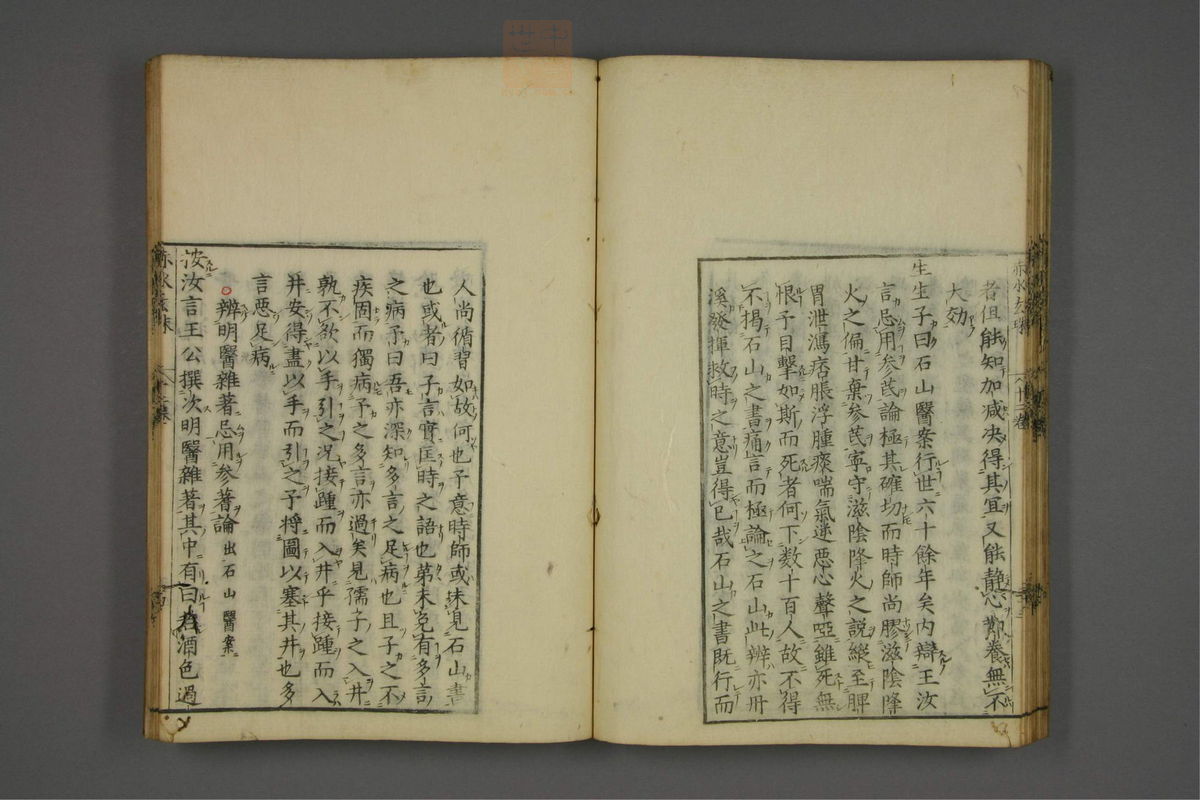 者但能知加减决得其宜又能靜心欝養無不
大効
生生子曰石山醫案行世六十餘年矣内辯王汝
言忌用參芪論極其確切而時師尚膠滋陰降
火之偏甘棄參芪寧守滋陰降火之説縱至脾
胃泄瀉痞脹浮腫痰喘氣逆惡心聲啞雖死無
恨予目擊如斯而死者何下数十百人故不得
不揭石山之書痛言而極論之石山此辨亦丹
溪發揮救時之意豈得已哉石山之書既行而
人尚循習如故何也予意時師或未見石山書
也或者曰子言實匡時之語也第未免有多言
之病予曰吾亦深知多言之足病也且子之不
疾固而獨病予之多言亦過矣見孺子之入井
孰不欲以手引之况接踵而入井乎接踵而入
井安得盡以手而引之予將圖以塞其井也多
言惡足病
辨明醫雜著忌用參蓍論 出石山醫案
按汝言王公撰次明醫雜著其中有曰若酒色過